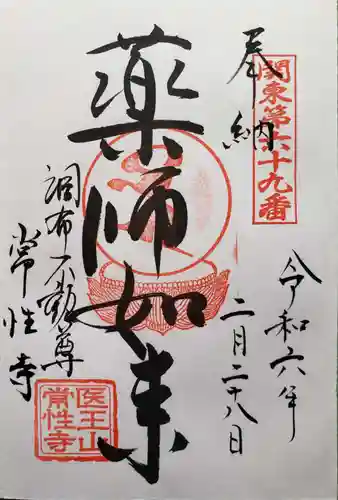 奉納
関東第六十九番
令和六年
二月二十八日
薬師如来
調布不動尊
常性寺
医王山
常性寺